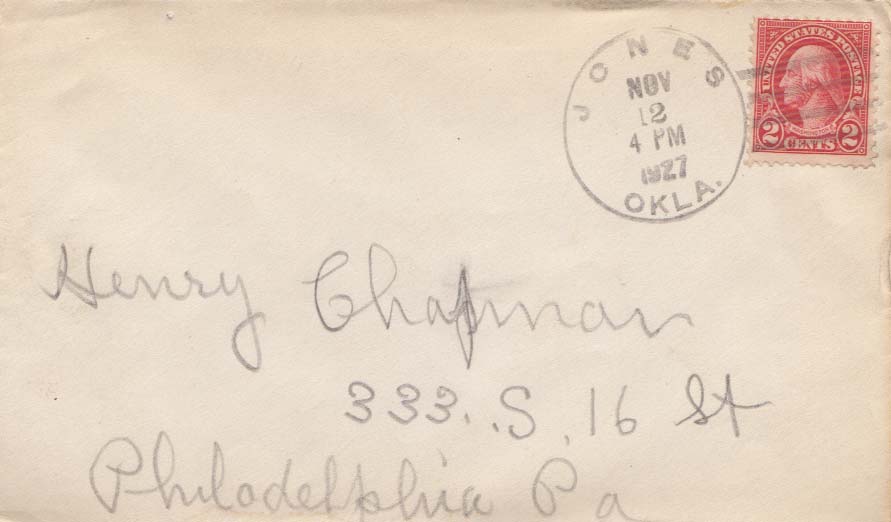 JONES
NOV
12
4 PM
1927
OKLA.
UNITED STATES POSTAGE
WASHINGTON
2 CENTS 2
Henry Chapman
333. S. 16 St
Philadelphia Pa